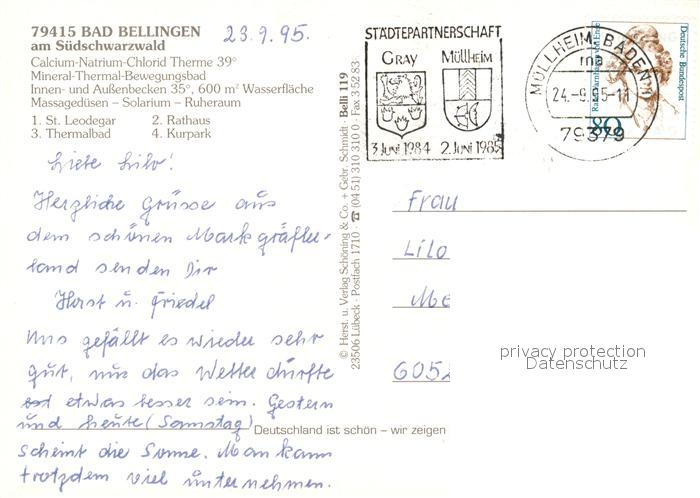 79415 BAD BELLINGEN
am Südschwarzwald
Calcium-Natrium-Chlorid Therme 39°
Mineral-Thermal-Bewegungsbad
Innen- und Außenbecken 35°, 600 m² Wasserfläche
Massagedüsen – Solarium – Ruheraum
1. St. Leodegar 2. Rathaus
3. Thermalbad 4. Kurpark
23.9.95.
Liebe Lilo!
Herzliche Grüsse aus
dem schönen Markgräfler-
land senden Dir
Horst u. Friedel
Uns gefällt es wieder sehr
gut, nur das Wetter dürfte
etwas besser sein. Gestern
und heute (Samstag)
scheint die Sonne. Man kann
trotzdem viel unternehmen.
Deutschland ist schön – wir zeigen
© Herst. u. Verlag Schöning & Co. + Gebr. Schmidt · Belli 119
23506 Lübeck · Postfach 1710 · ☎ (04 51) 310 310 0 · Fax 3 52 83
STÄDTEPARTNERSCHAFT
GRAY MÜLLHEIM
3. JUNI 1984 2. JUNI 1985
MÜLLHEIM, BADEN 1
ma
24.-9.95-11
79379
Deutsche Bundespost
Rahel Varnhagen von Ense
80
Frau
Lilo
Me
6052
privacy protection
Datenschutz